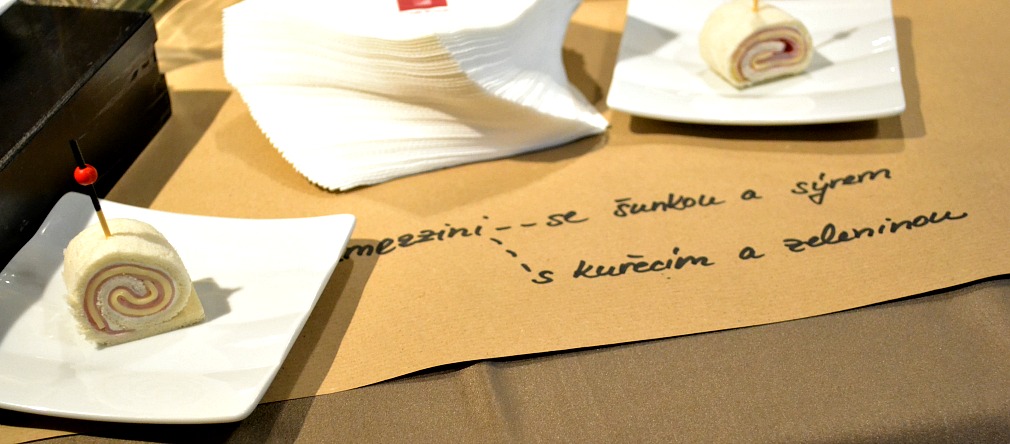 mezzini -- se šunkou a sýrem
s kuřecím a zeleninou